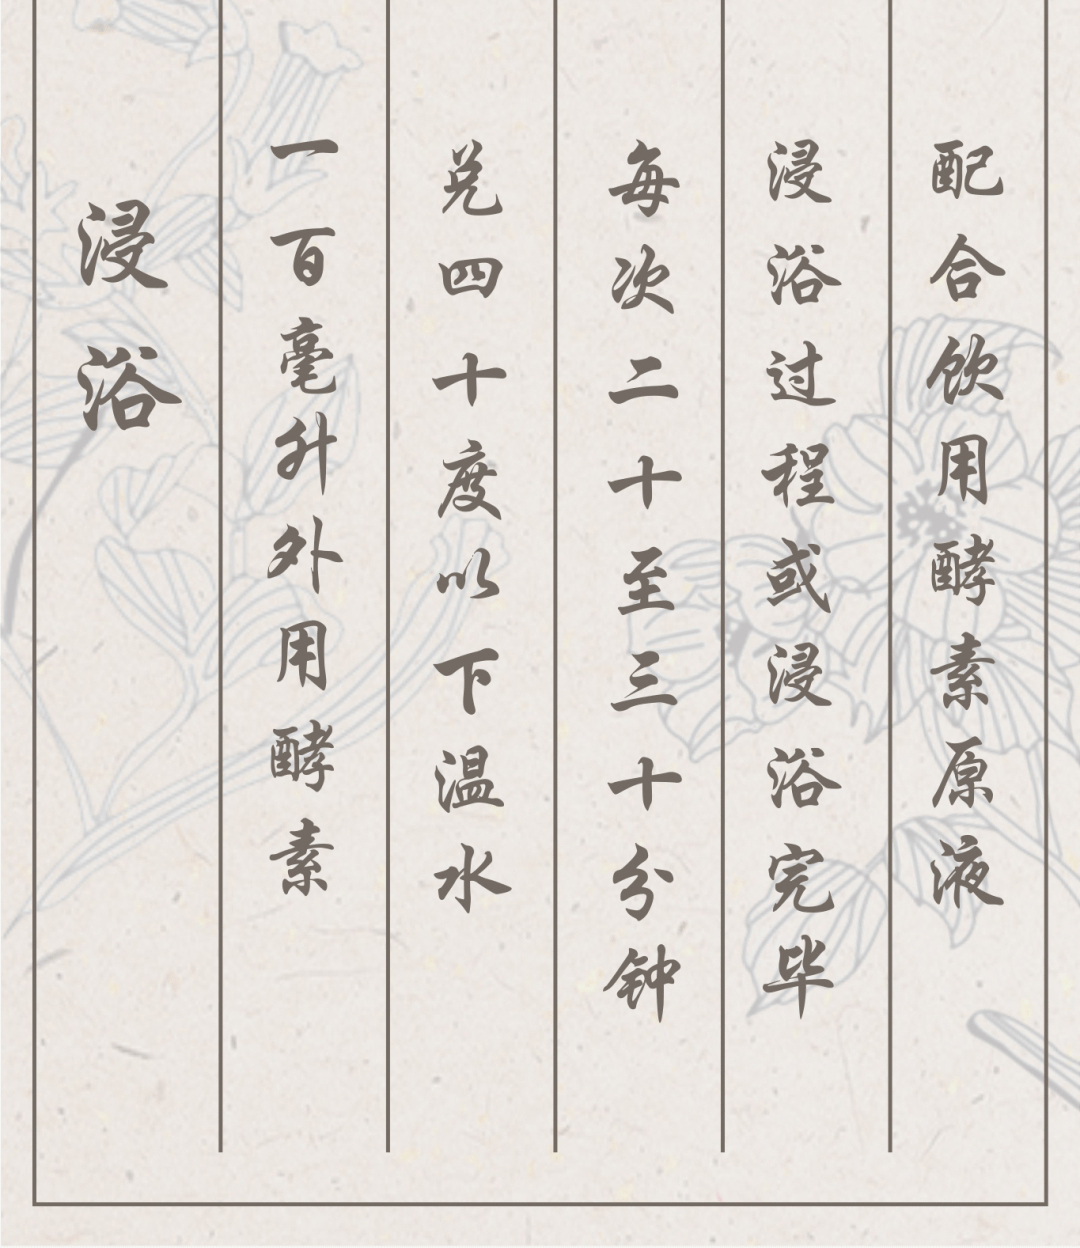 浸浴
一百毫升外用酵素
兑四十度以下温水
每次二十至三十分钟
浸浴过程或浸浴完毕
配合饮用酵素原液